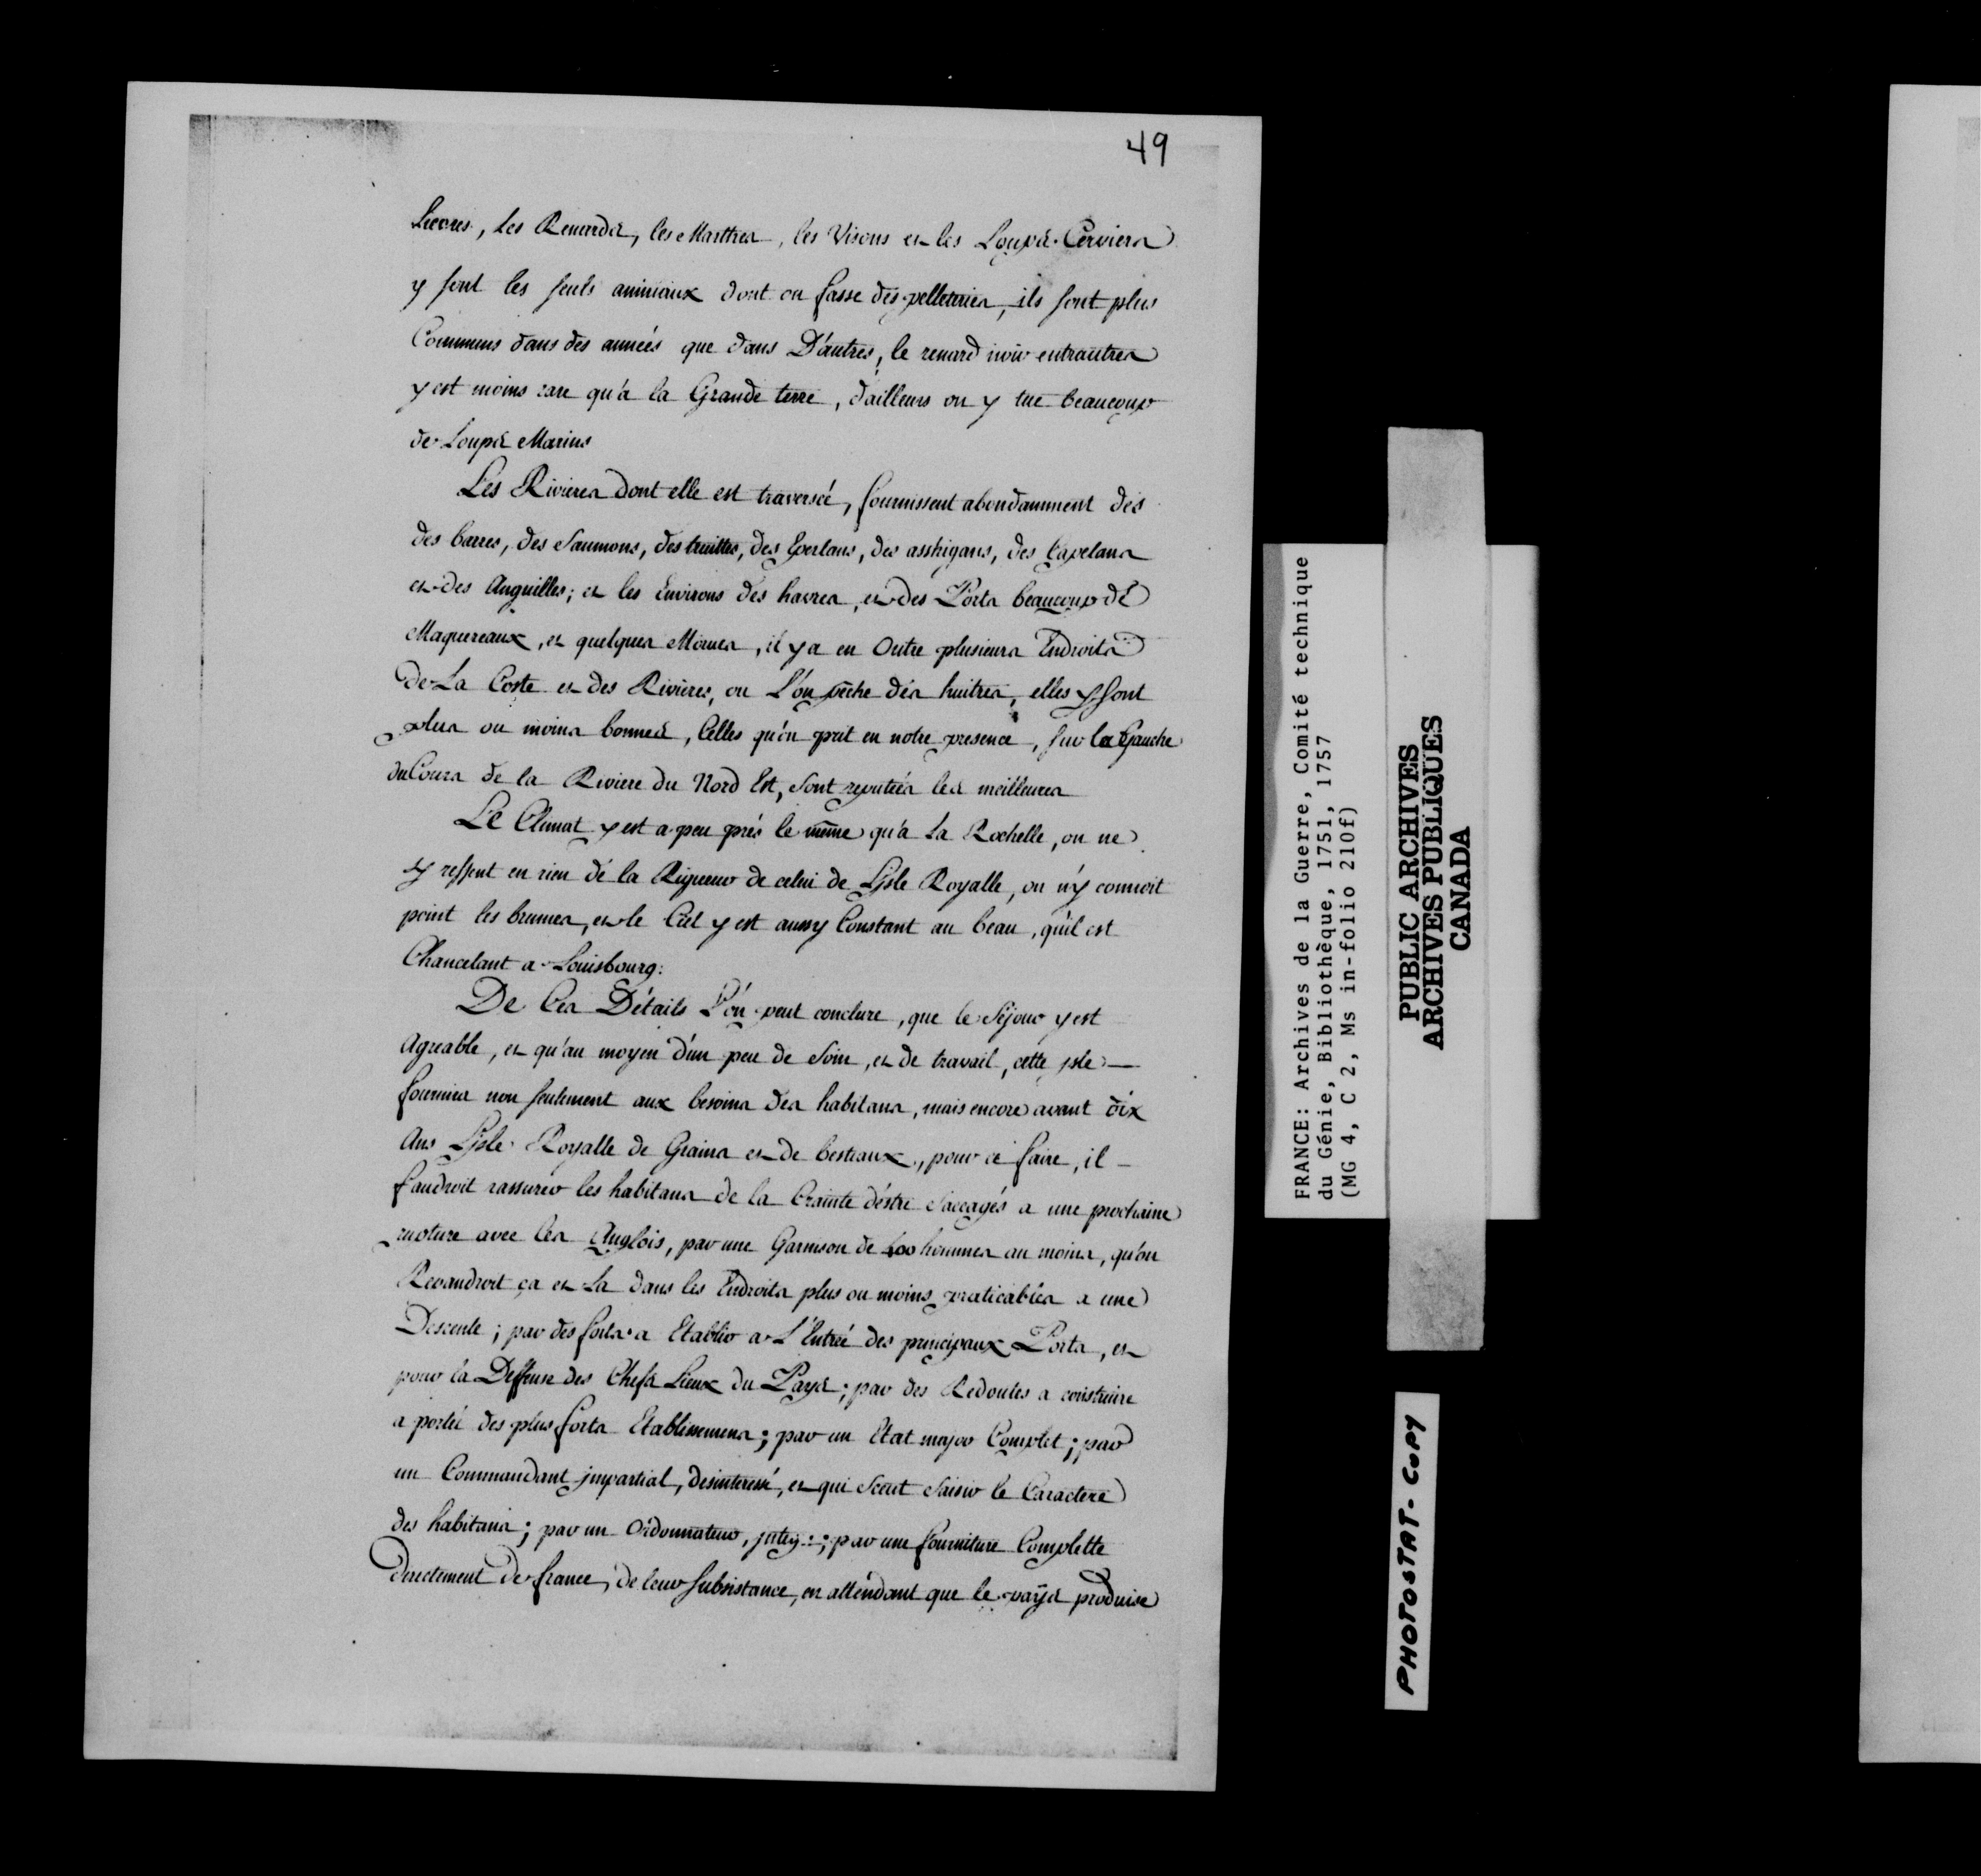 49
Lievres, Les Renards, les Marttres, les Visons et les Loups-Cerviers
y sont les seuls animaux dont on fasse des pelleteries, ils sont plus
Communs dans des années que dans D'autres, le renard noir entrautres
y est moins rare qu'a la Grande terre, d'ailleurs on y tue beaucoup
de Loups Marins
Les Rivieres dont elle est traversée, fournissent abondamment des
des barres, des Saumons, des truittes, des Eperlans, des asshigans, des Capelans
et des Anguilles; et les Environs des havres, et des Ports beaucoup de
Maquereaux, et quelques Morues, il y a en Outre plusieurs Endroits
de La Coste et des Rivieres, ou L'on pêche des huitres, elles y sont
plus ou moins bonnes, Celles qu'on prit en notre presence, sur la Gauche
du Cours de la Riviere du Nord Est, sont reputées les meilleures
Le Climat y est a peu prés le même qu'a La Rochelle, on ne
y ressent en rien de la Rigueur de celui de Lisle Royalle, on n'y connoit
point les brumes, et le Ciel y est aussy Constant au beau, qu'il est
Chancelant a Louisbourg:
De Ces Détails L'on peut conclure, que le Séjour y est
Agreable, et qu'au moyen d'un peu de Soin, et de travail, cette isle
fournira non seulement aux besoins des habitans, mais encore avant dix
Ans Lisle Royalle de Grains et de bestiaux, pour ce faire, il
faudroit rassurer les habitans de la Crainte d'éstre saccagés a une prochaine
rupture avec les Anglois, par une Garnison de 400 hommes au moins, qu'on
Repandroit ça et La dans les Endroits plus ou moins praticables a une
Descente; par des forts a Etablir a L'Entrée des principaux Ports, et
pour la Deffense des Chefs Lieux du Pays; par des Redoutes a construire
a portée des plus forts Etablissemens; par un Etat major Complet; par
un Commandant impartial, desinteressé, et qui Sceut Saisir le Caractere
des habitans; par un Ordonnateur, integ:; par une fourniture Complette
directement de france, de leur Subsistance, en attendant que le pays produise
FRANCE: Archives de la Guerre, Comité technique
du Génie, Bibliothèque, 1751, 1757
(MG 4, C 2, Ms in-folio 210f)
PUBLIC ARCHIVES
ARCHIVES PUBLIQUES
CANADA
PHOTOSTAT-COPY